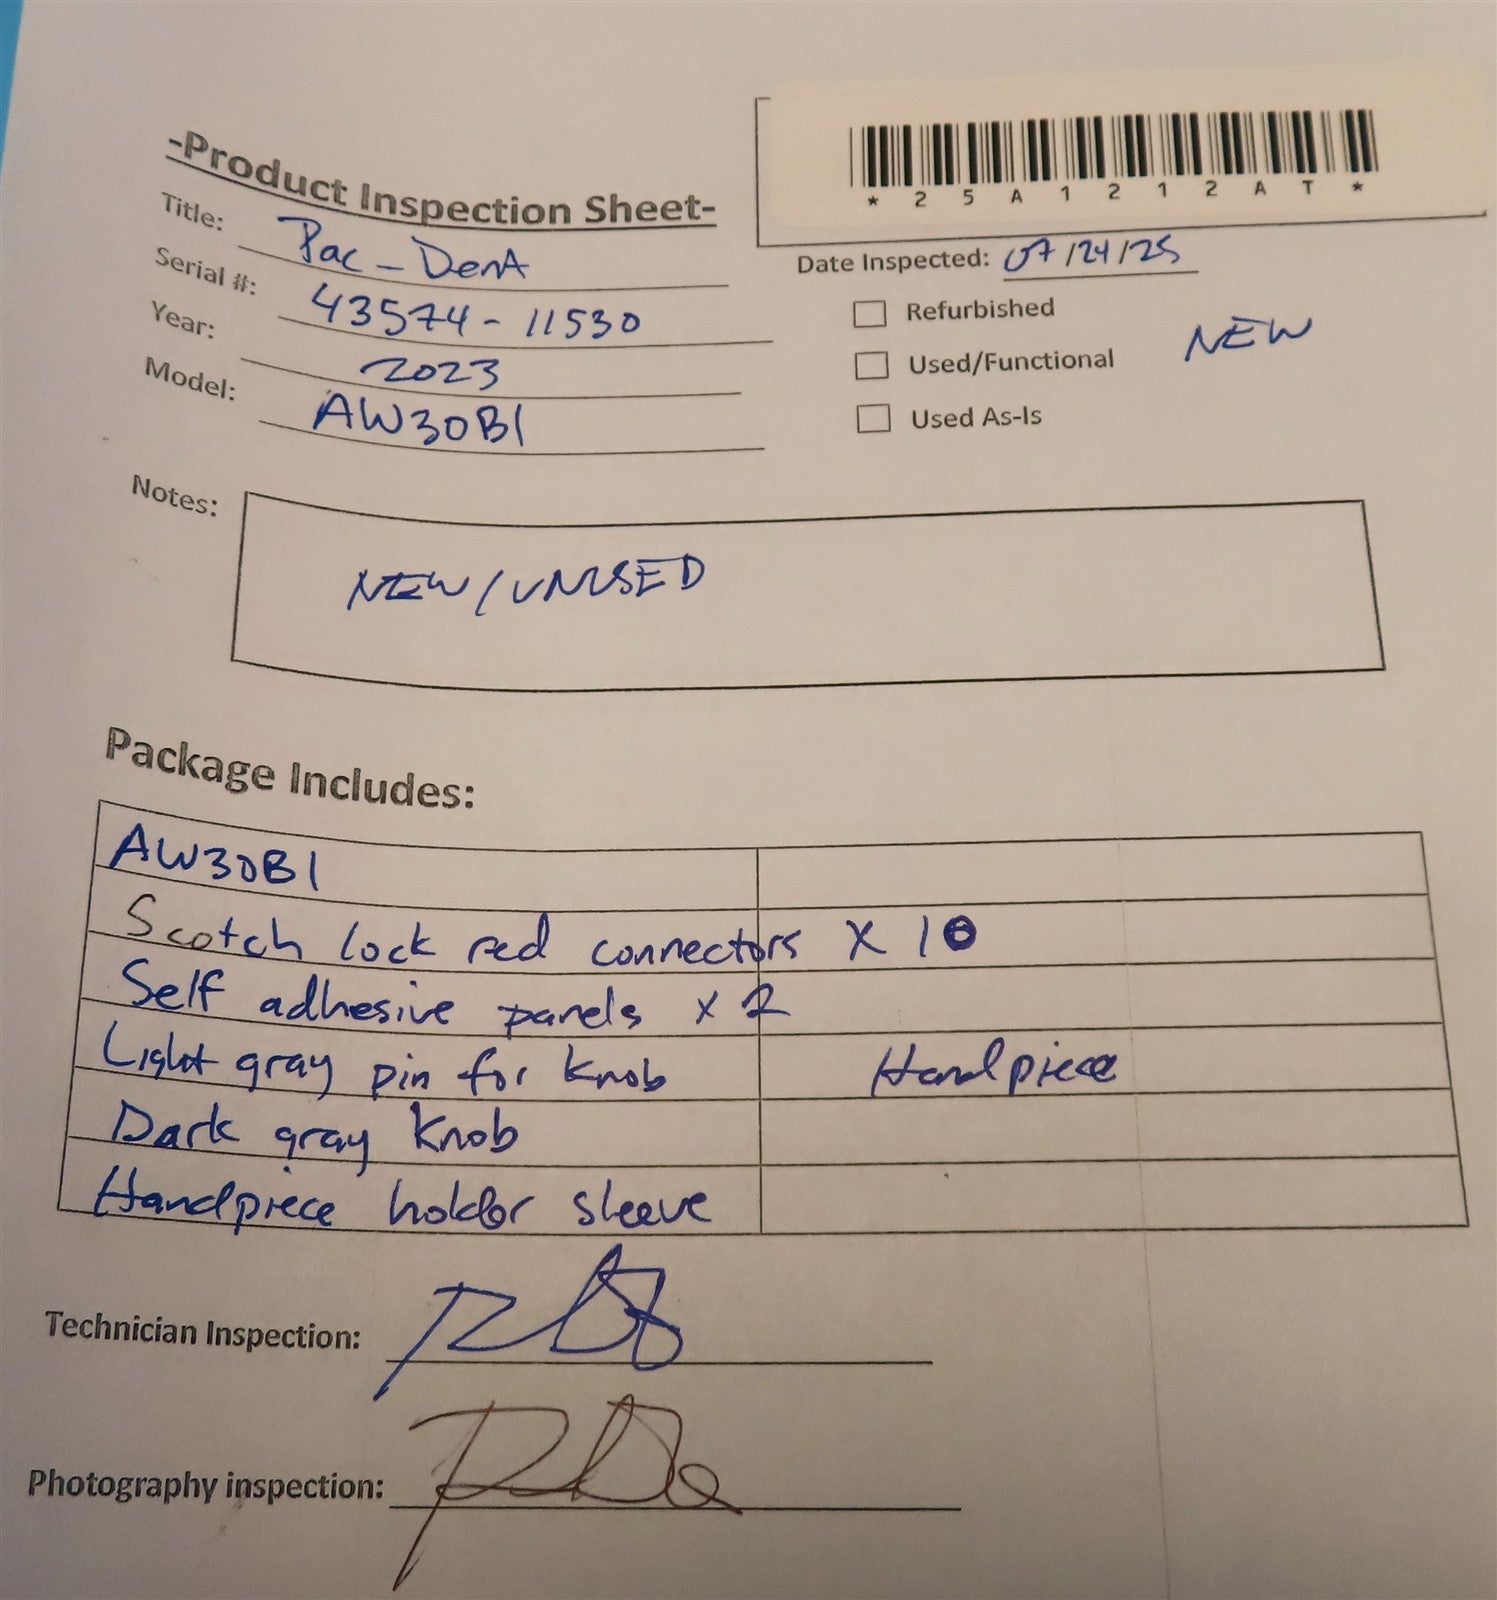 -Product Inspection Sheet-
*25A1212AT*
Title: Pac-Dent
Date Inspected: 07/24/25
Serial #: 43574-11530
Refurbished
Year: 2023
Used/Functional
NEW
Model: AW30B1
Used As-Is
Notes:
NEW/UNUSED
Package Includes:
AW30B1
Scotch lock red connectors X 10
Self adhesive panels x 2
Light gray pin for knob
Handpiece
Dark gray knob
Handpiece holder sleeve
Technician Inspection:
Photography inspection: